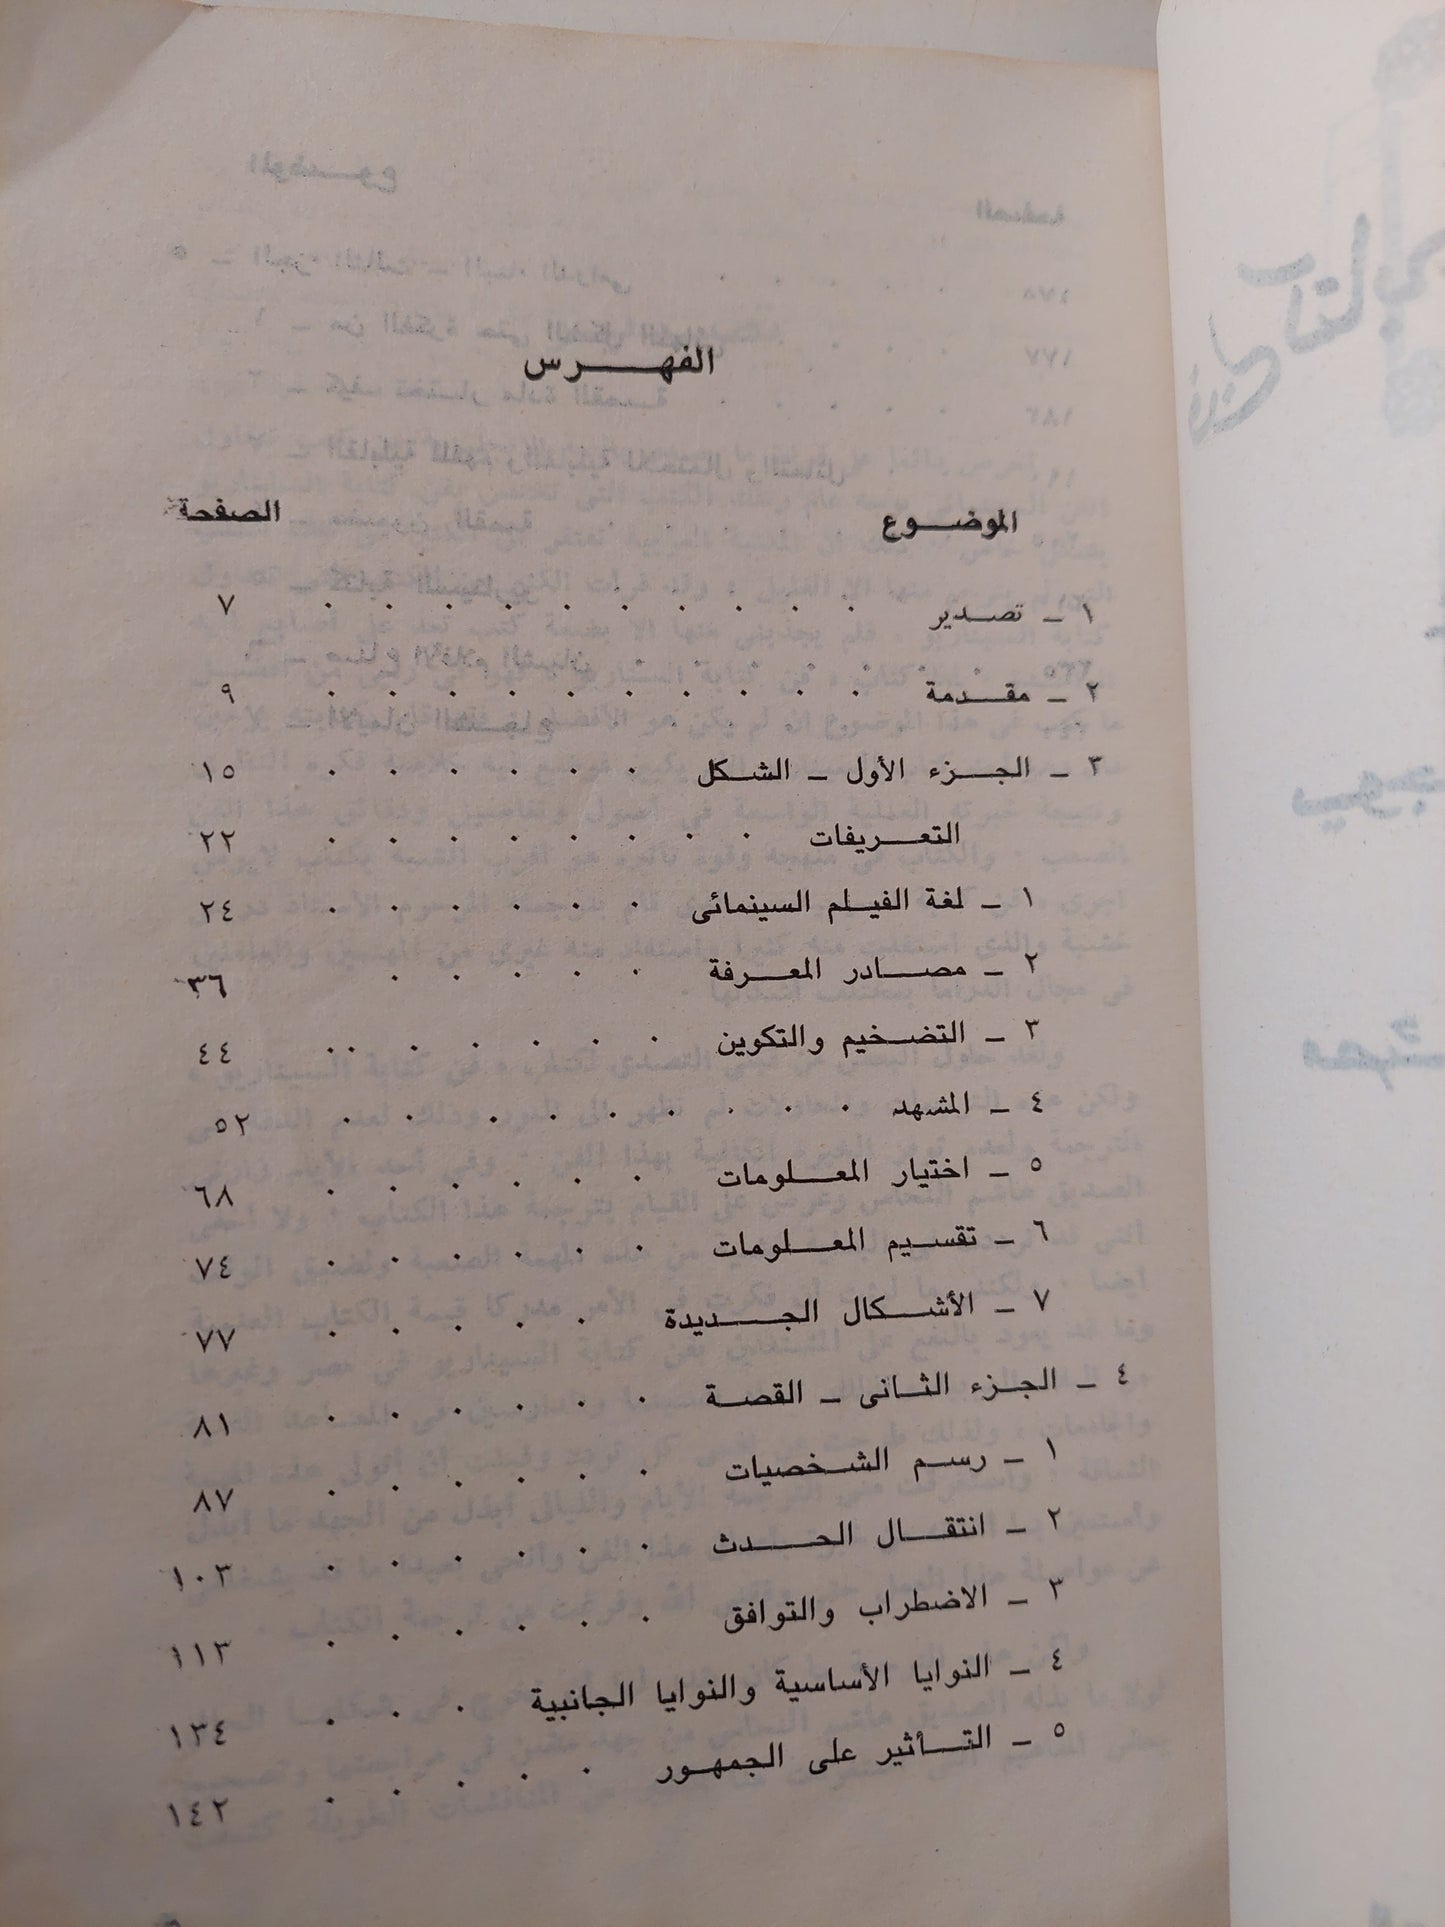 الفهرس
الموضوع الصفحة
١ - تصدير ٧
٢ - مقدمة ٩
٣ - الجزء الأول - الشكل ١٥
التعريفات ٢٢
١ - لغة الفيلم السينمائى ٢٤
٢ - مصادر المعرفة ٣٦
٣ - التضخيم والتكوين ٤٤
٤ - المشهد ٥٢
٥ - اختيار المعلومات ٦٨
٦ - تقسيم المعلومات ٧٤
٧ - الأشكال الجديدة ٧٧
٤ - الجزء الثانى - القصة ٨١
١ - رسم الشخصيات ٨٧
٢ - انتقال الحدث ١٠٣
٣ - الاضطراب والتوافق ١١٣
٤ - النوايا الأساسية والنوايا الجانبية ١٣٤
٥ - التأثير على الجمهور ١٤٢